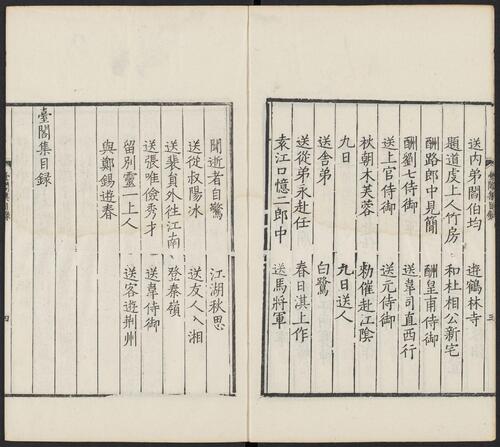 送内弟閻伯均　遊鶴林寺
題道虔上人竹房　和杜相公新宅
酬路郎中見簡　酬皇甫侍御
酬劉七侍御　送韋司直西行
送上官侍御　送元侍御
秋朝木芙蓉　勑催赴江陰
九日　九日送人
送舍弟　白鷺
送從弟永赴任　春日淇上作
袁江口憶二郎中　送馬將軍
三
聞逝者自驚　江湖秋思
送從叔陽冰　送友人入湘
送裴員外往江南　登秦嶺
送張唯儉秀才　送韋侍御
留别靈一上人　送客遊荆州
與鄭錫遊春
臺閣集目録
四